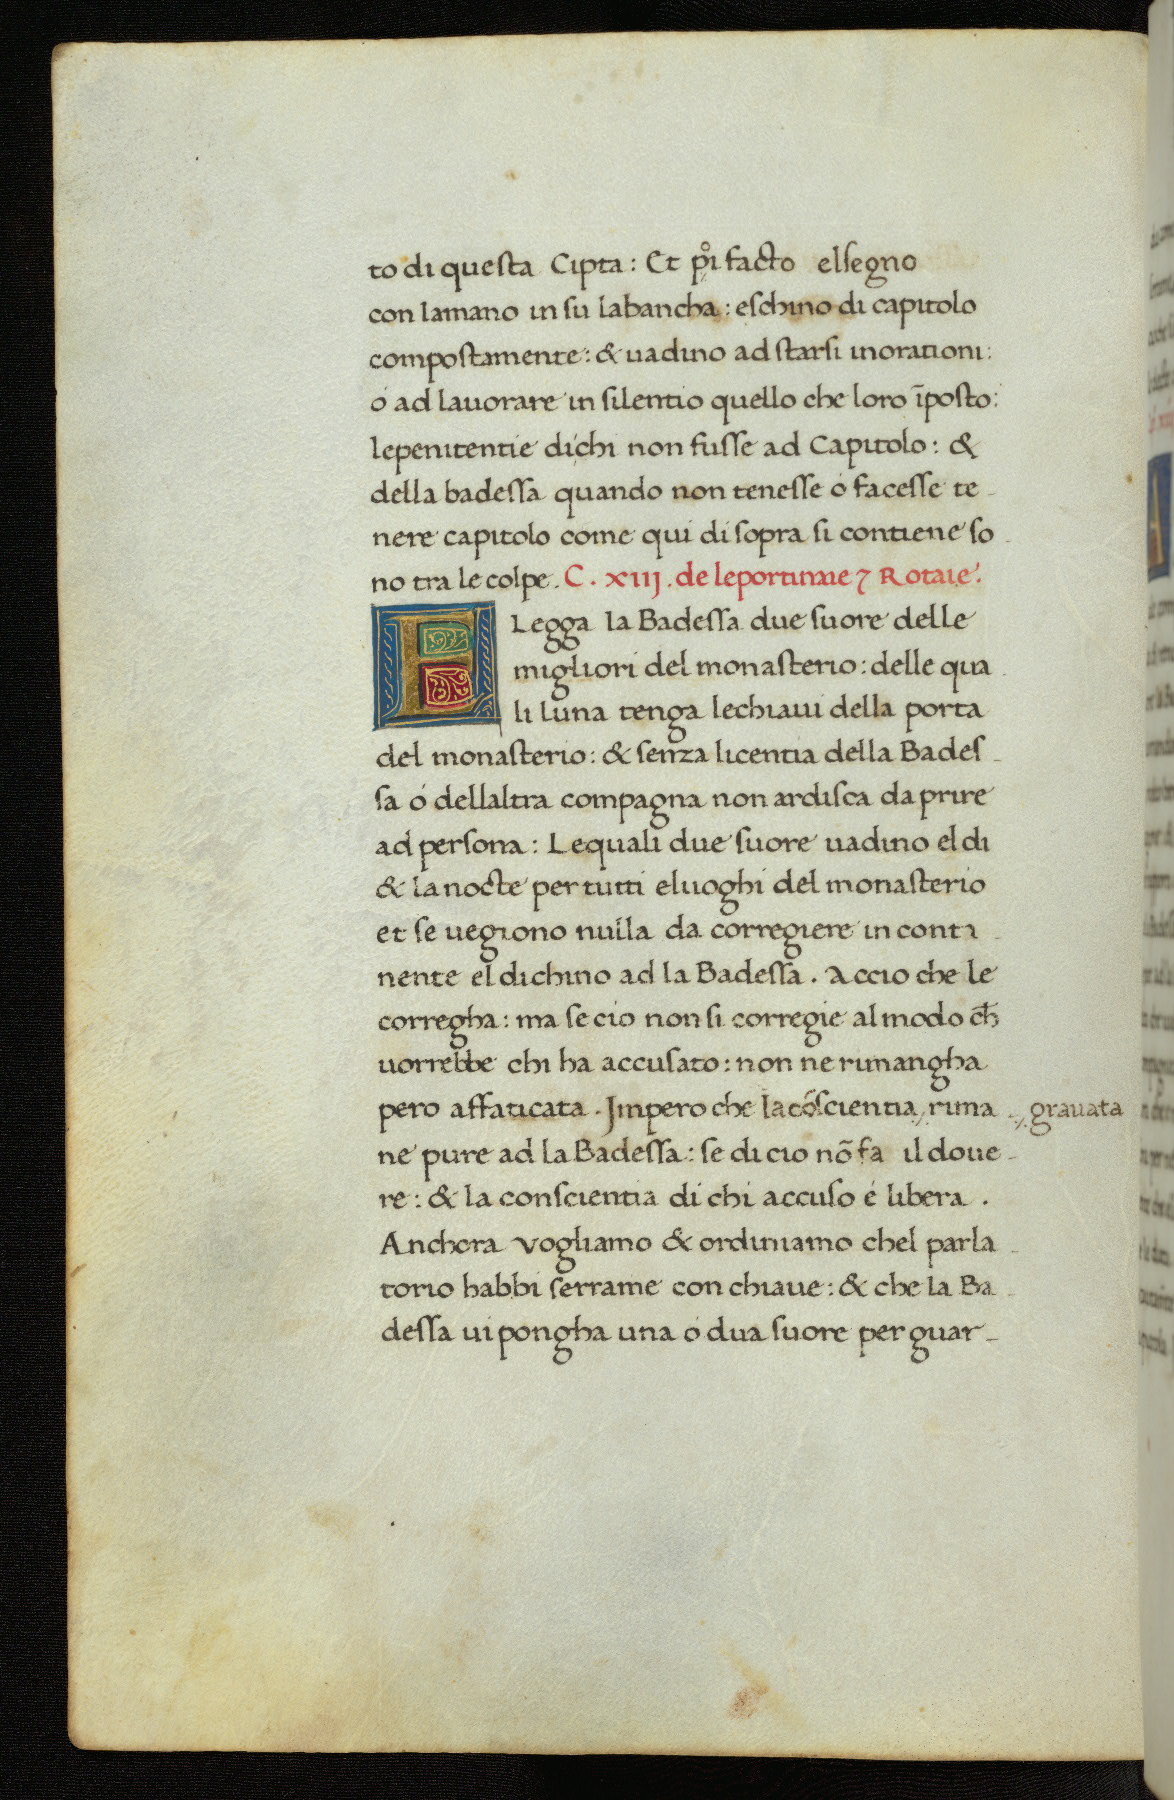 to di questa Cipta: Et p̊i facto elsegno
con lamano in su labancha: eschino di capitolo
compostamente: & uadino ad starsi inorationi:
ó ad lauorare in silentio quello che loro īposto:
lepenitentie dichi non fusse ad Capitolo: &
della badessa quando non tenesse ó facesse te
nere capitolo come qui di sopra si contiene so
no tra le colpe. C. xiij. de leportinaie ⁊ Rotaie.
E Legga la Badessa due suore delle
migliori del monasterio: delle qua
li luna tenga lechiaui della porta
del monasterio: & senza licentia della Bades
sa ó dellaltra compagna non ardisca da prire
ad persona: Lequali due suore uadino el di
& la nocte per tutti eluoghi del monasterio
et se uegiono nulla da corregiere in conti
nente el dichino ad la Badessa. Accio che le
corregha: ma se cio non si corregie al modo cħ
uorrebbe chi ha accusato: non ne rimangha
pero affaticata. Jmpero che la cōscientia rima grauata
ne pure ad la Badessa: se di cio nō fa il doue
re: & la conscientia di chi accuso é libera.
Anchora vogliamo & ordiniamo chel parla
torio habbi serrame con chiaue: & che la Ba
dessa ui pongha una ó dua suore per guar-